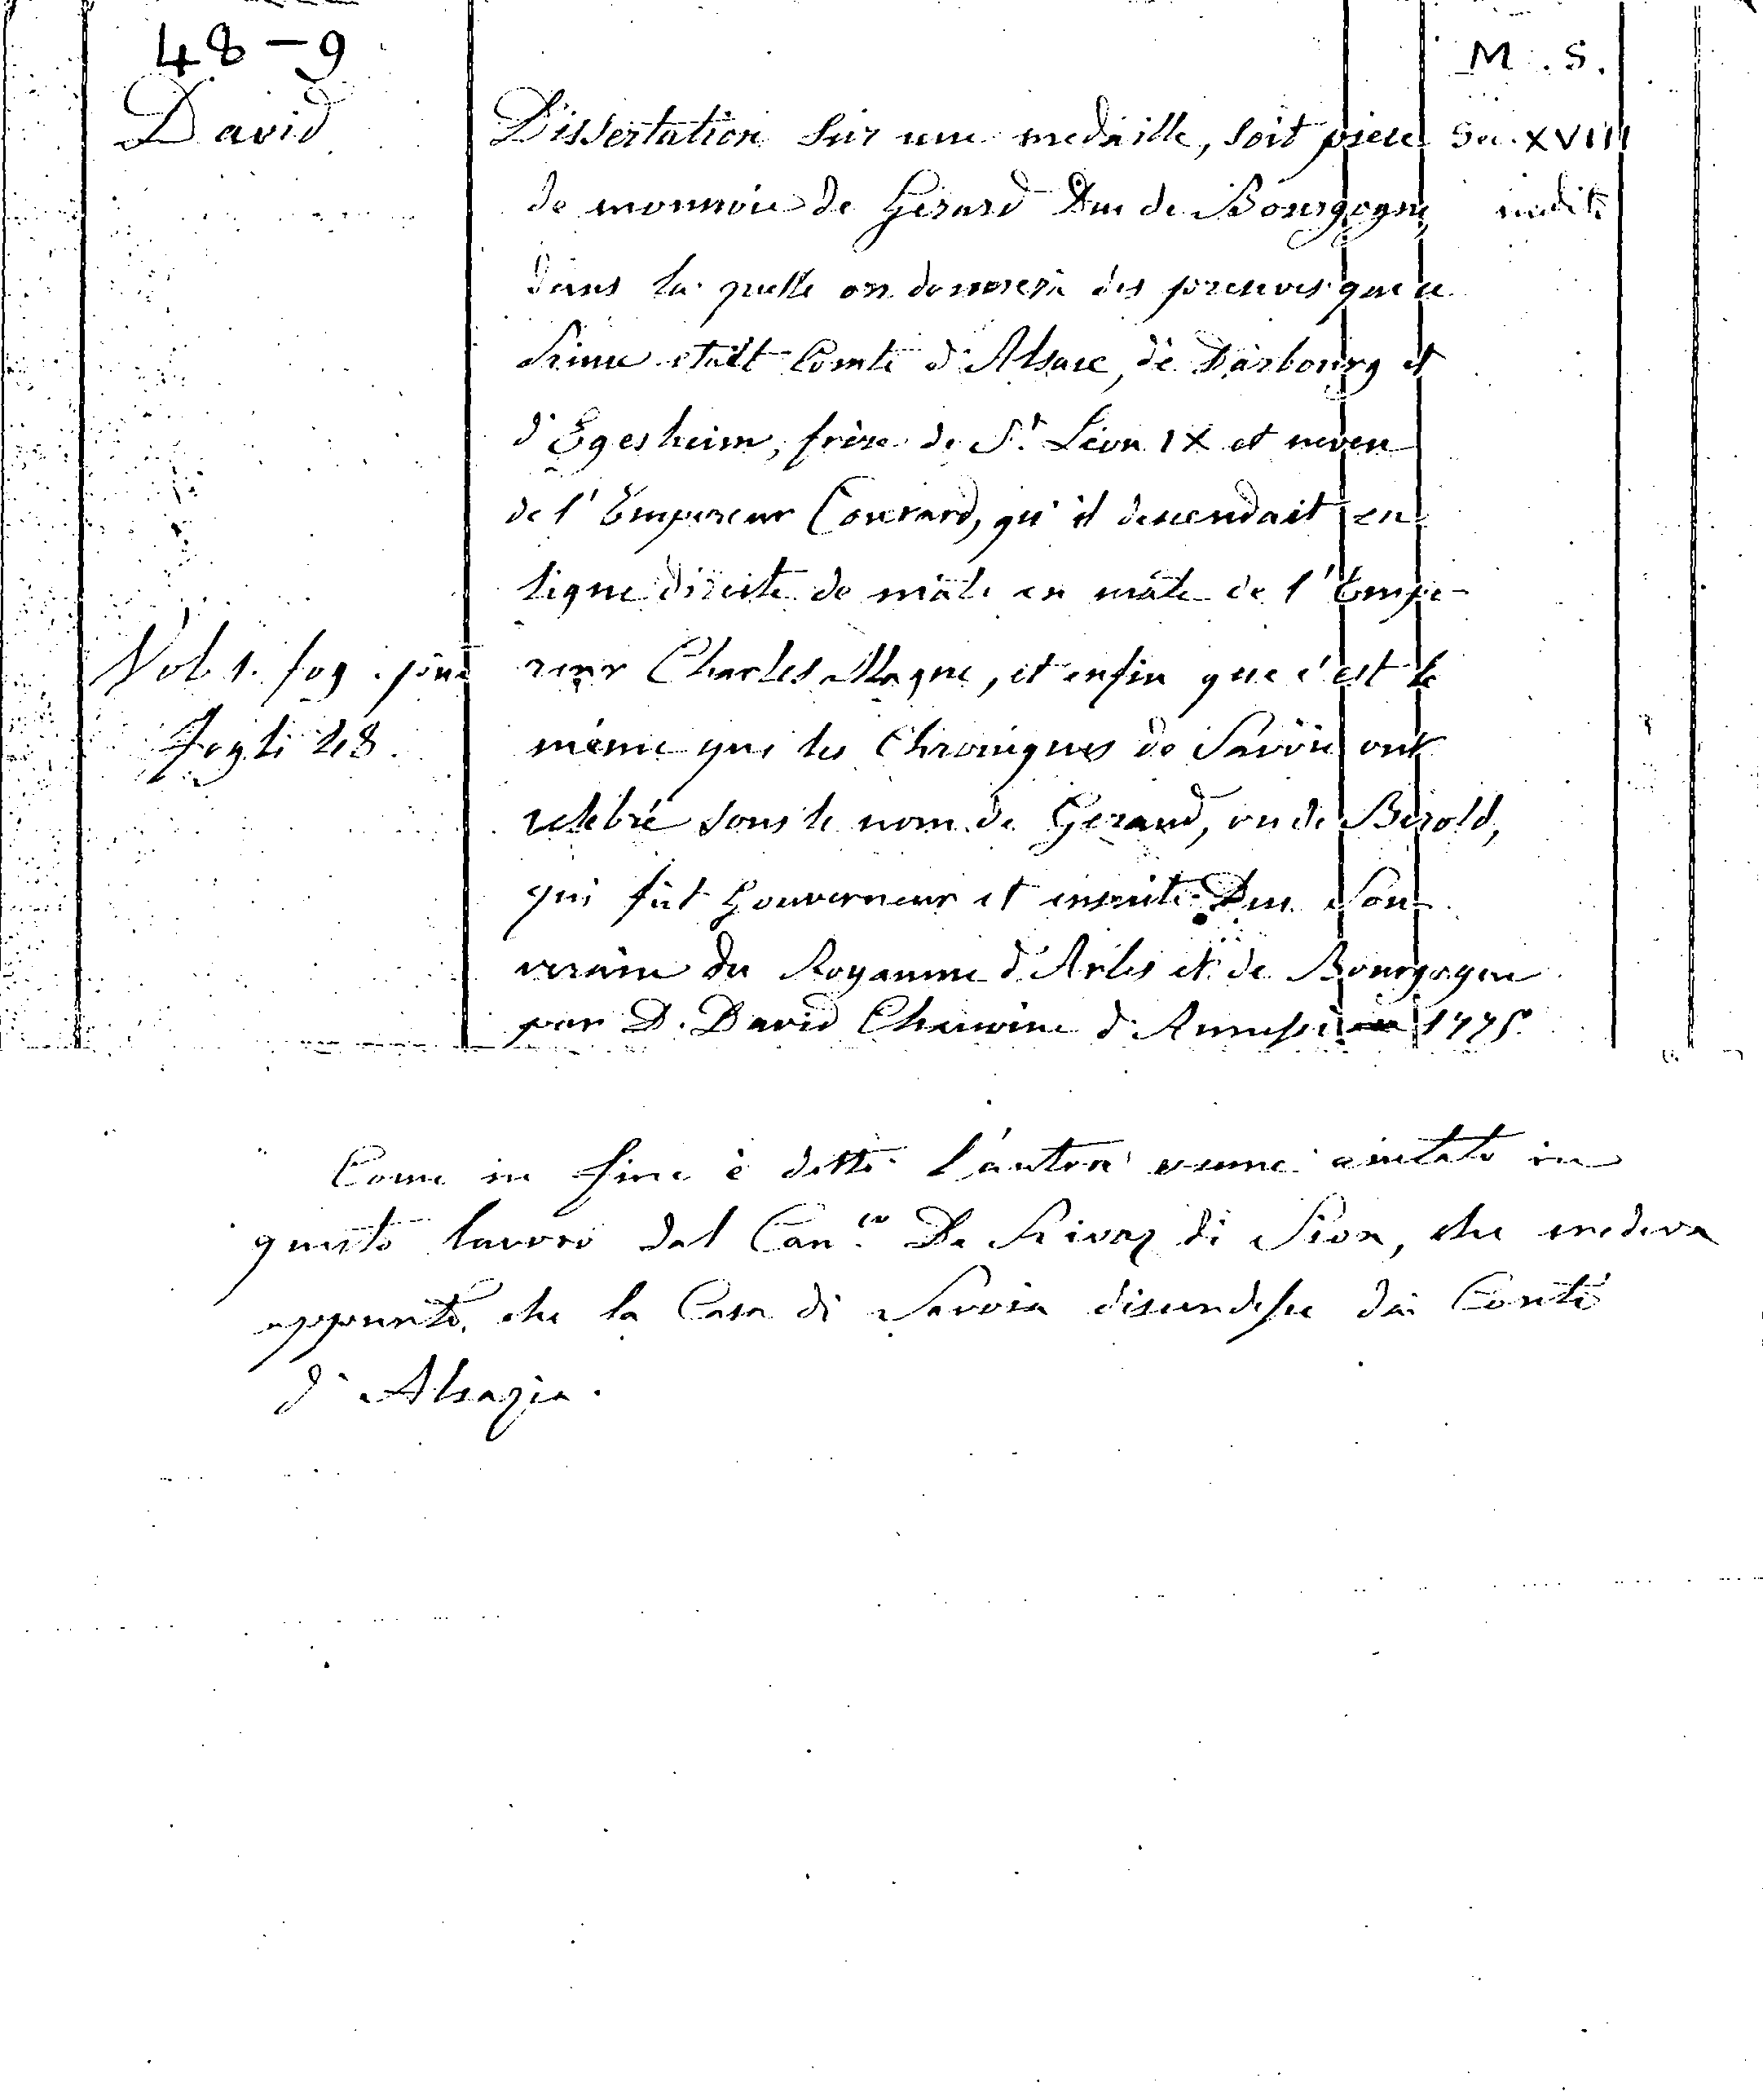 48-9
M.S.
David
Dissertation sur une medaille, soit piece
Sec. XVIII
de monnoie de Gerard Duc de Bourgogne
inedito
dans la quelle on donnera des preuves que ce
Prince etait Comte d'Alsace, de Darbourg et
d'Egesheim, frère de St. Léon IX et neveu
de l'Empereur Conrard, qu'il descendait en
ligne directe de mâle en mâle de l'Empe-
Vol. 1. fog. picc
reur Charles Magne, et enfin que c'est le
Fogli 48.
même que les Chroniques de Savoie ont
celebré sous le nom de Gerard, ou de Berold,
qui fût Gouverneur et ensuite Duc Sou-
verain du Royaume d'Arles et de Bourgogne
par D. David Chanoine d'Annessi 1775.
Come in fine è detto l'autore venne aiutato in
questo lavoro dal Can.co De Rivaz di Sion, che credeva
appunto, che la Casa di Savoia discendesse dai Conti
d'Alsazia.